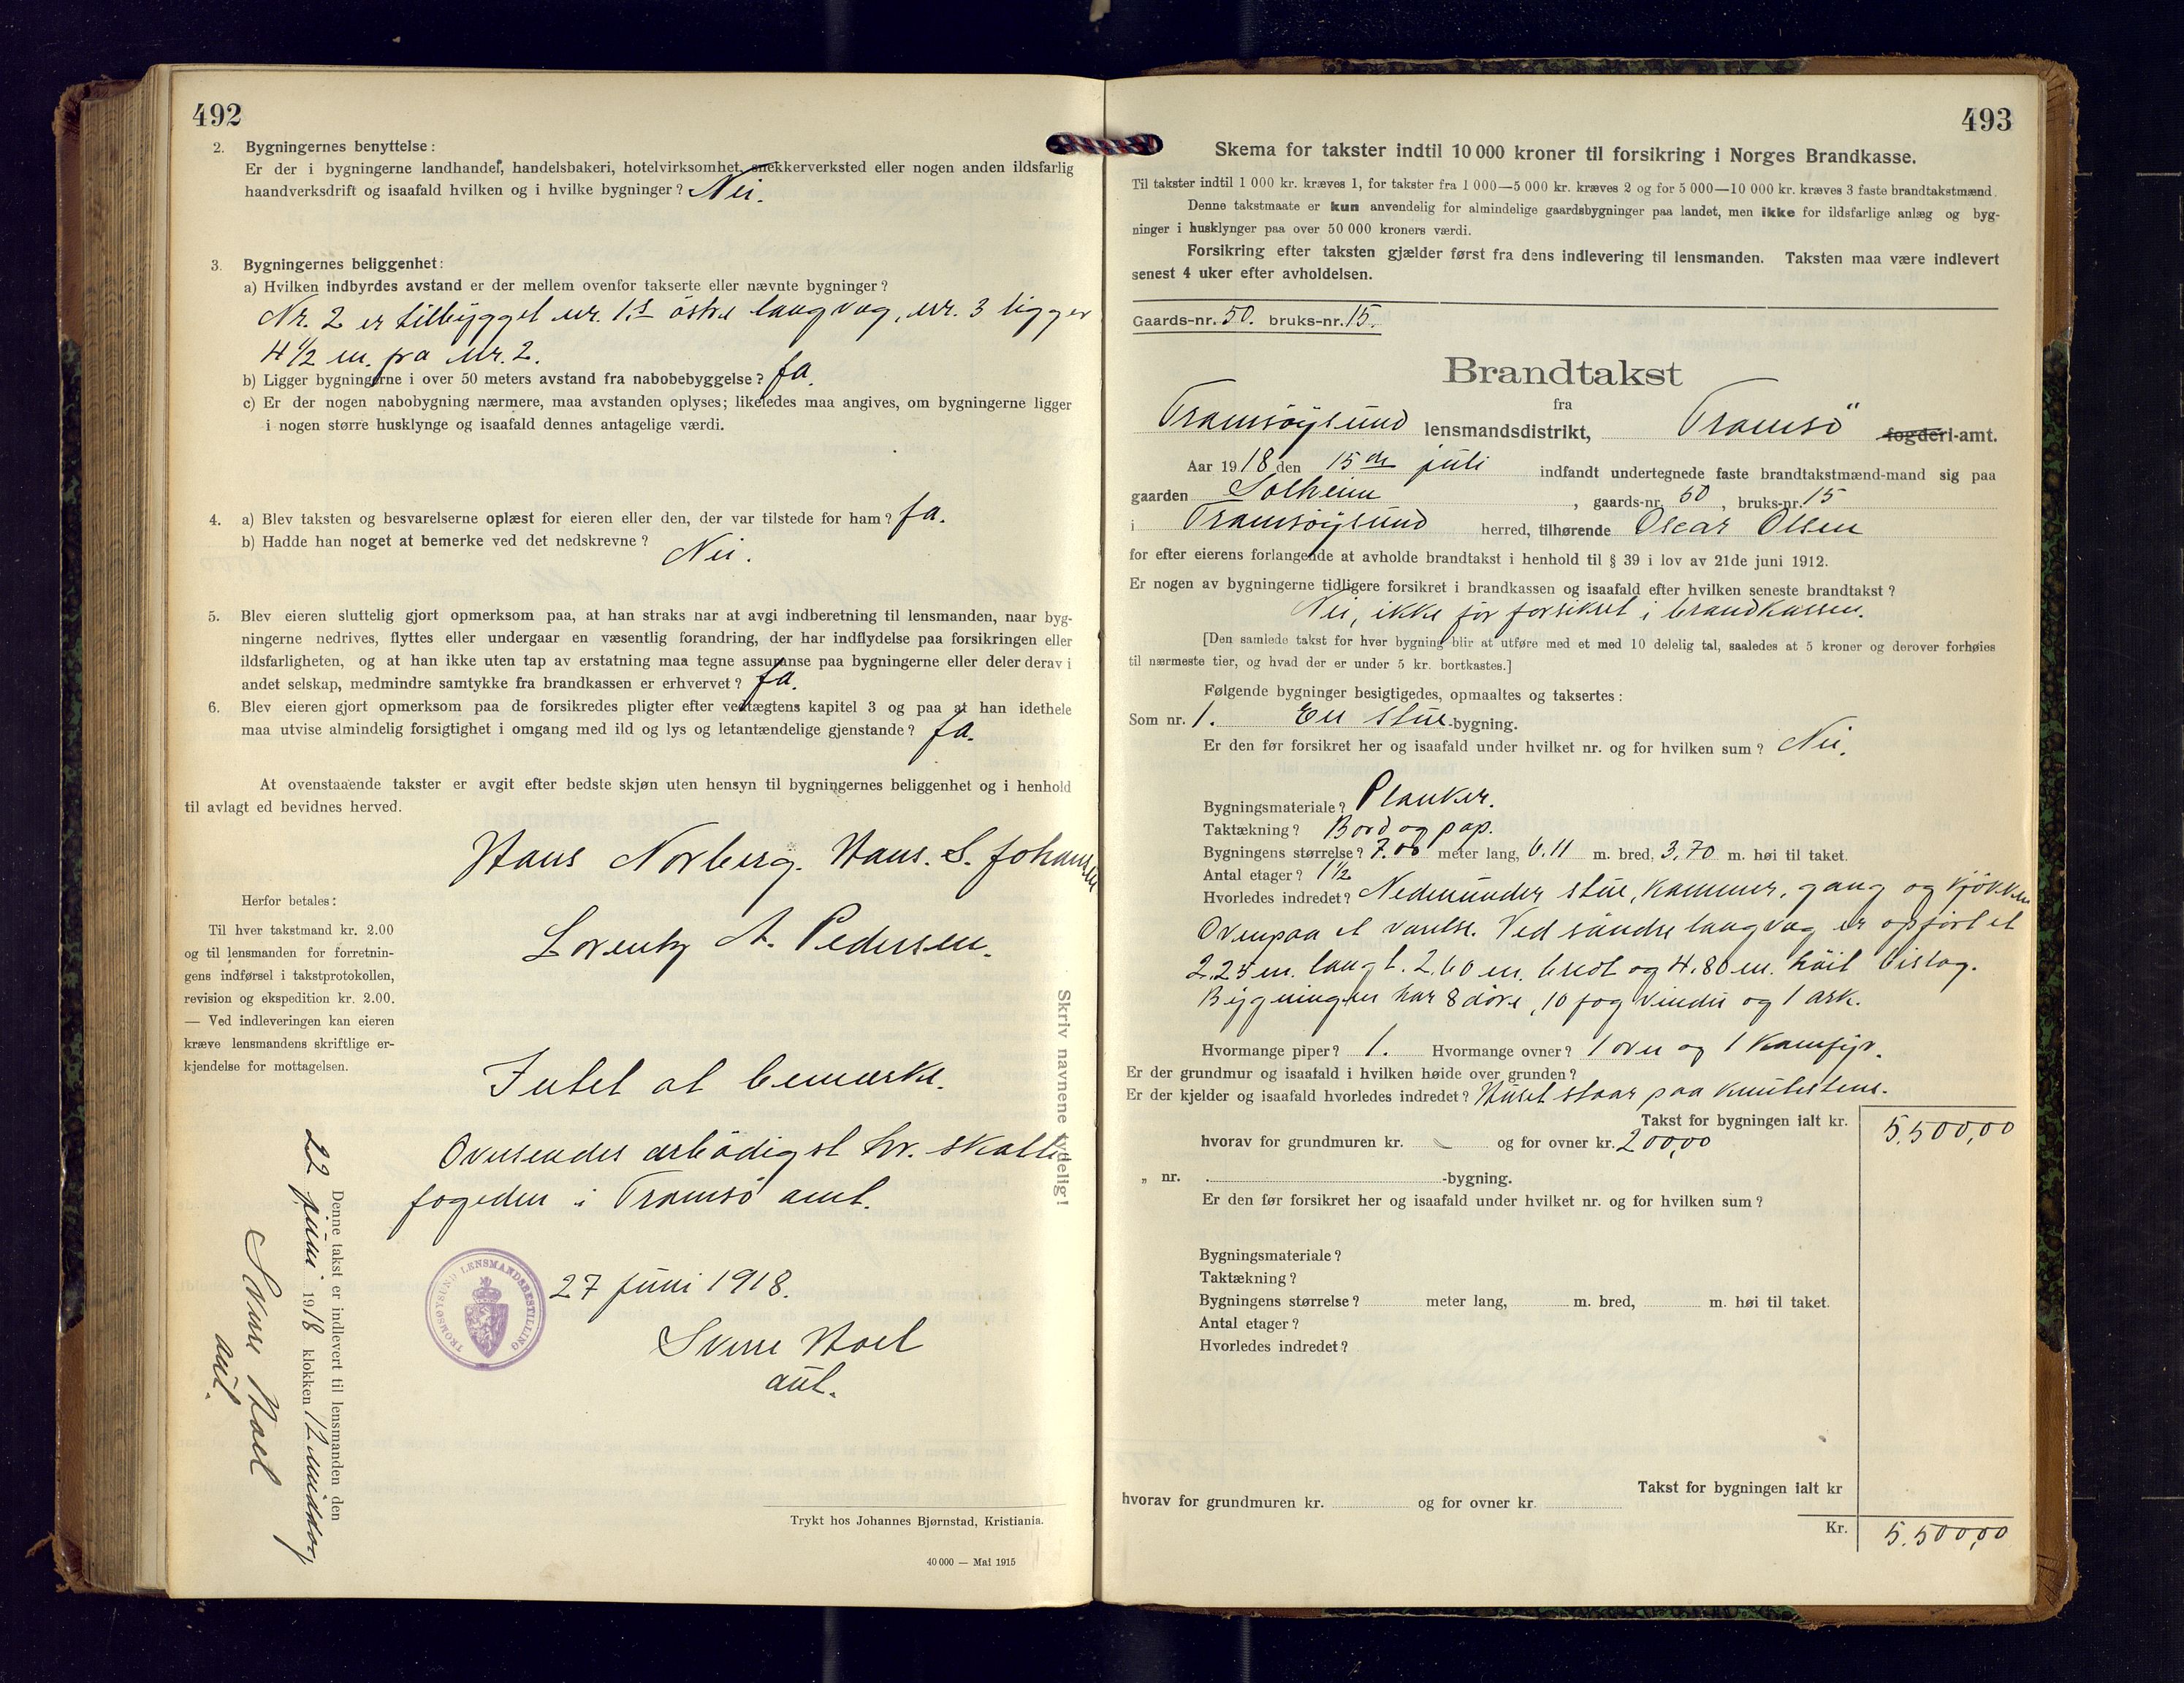 492
2. Bygningernes benyttelse:
Er der i bygningerne landhandel, handelsbakeri, hotelvirksomhet, snekkerverksted eller nogen anden ildsfarlig
haandverksdrift og isaafald hvilken og i hvilke bygninger? Nei.
3. Bygningernes beliggenhet:
a) Hvilken indbyrdes avstand er der mellem ovenfor takserte eller nævnte bygninger?
Nr. 2 er tilbygget nr. 1.s østre langvæg, nr. 3 ligger
4 1/2 m. fra nr. 2.
b) Ligger bygningerne i over 50 meters avstand fra nabobebyggelse? Ja.
c) Er der nogen nabobygning nærmere, maa avstanden oplyses; likeledes maa angives, om bygningerne ligger
i nogen større husklynge og isaafald dennes antagelige værdi.
4. a) Blev taksten og besvarelserne oplæst for eieren eller den, der var tilstede for ham? Ja.
b) Hadde han noget at bemerke ved det nedskrevne? Nei.
5. Blev eieren sluttelig gjort opmerksom paa, at han straks har at avgi indberetning til lensmanden, naar byg-
ningerne nedrives, flyttes eller undergaar en væsentlig forandring, der har indflydelse paa forsikringen eller
ildsfarligheten, og at han ikke uten tap av erstatning maa tegne assuranse paa bygningerne eller deler derav i
andet selskap, medmindre samtykke fra brandkassen er erhvervet? Ja.
6. Blev eieren gjort opmerksom paa de forsikredes pligter efter vedtægtens kapitel 3 og paa at han idethele
maa utvise almindelig forsigtighet i omgang med ild og lys og letantændelige gjenstande? Ja.
At ovenstaaende takster er avgit efter bedste skjøn uten hensyn til bygningernes beliggenhet og i henhold
til avlagt ed bevidnes herved.
Hans Norberg. Hans. S. Johansen
Lorentz A. Pedersen.
Herfor betales:
Til hver takstmand kr. 2.00
og til lensmanden for forretnin-
gens indførsel i takstprotokollen,
revision og ekspedition kr. 2.00.
— Ved indleveringen kan eieren
kræve lensmandens skriftlige er-
kjendelse for mottagelsen.
Skriv navnene tydelig!
Intet at bemærke.
Oversendes ærbødigst hr. skatte
fogeden i Tromsö amt.
27 juni 1918.
TROMSØYSUND LENSMANDSBESTILLING
Sverre Hoel
aut.
Denne takst er indlevert til lensmanden den
22 juni 1918 klokken 12 middag
Sverre Hoel
aut.
Trykt hos Johannes Bjørnstad, Kristiania.
40 000 — Mai 1915
493
Skema for takster indtil 10 000 kroner til forsikring i Norges Brandkasse.
Til takster indtil 1 000 kr. kræves 1, for takster fra 1 000—5 000 kr. kræves 2 og for 5 000—10 000 kr. kræves 3 faste brandtakstmænd.
Denne takstmaate er kun anvendelig for almindelige gaardsbygninger paa landet, men ikke for ildsfarlige anlæg og byg-
ninger i husklynger paa over 50 000 kroners værdi.
Forsikring efter taksten gjælder først fra dens indlevering til lensmanden. Taksten maa være indlevert
senest 4 uker efter avholdelsen.
Gaards-nr. 50. bruks-nr. 15.
Brandtakst
fra
Tromsöysund lensmandsdistrikt, Tromsö fogderi-amt.
Aar 1918 den 15de juli indfandt undertegnede faste brandtakstmænd-mand sig paa
gaarden Solheim, gaards-nr. 50, bruks-nr. 15
i Tromsöysund herred, tilhørende Oscar Olsen
for efter eierens forlangende at avholde brandtakst i henhold til § 39 i lov av 21de juni 1912.
Er nogen av bygningerne tidligere forsikret i brandkassen og isaafald efter hvilken seneste brandtakst?
Nei, ikke før forsikret i brandkassen.
[Den samlede takst for hver bygning blir at utføre med et med 10 delelig tal, saaledes at 5 kroner og derover forhøies
til nærmeste tier, og hvad der er under 5 kr. bortkastes.]
Følgende bygninger besigtigedes, opmaaltes og taksertes:
Som nr. 1. En stue-bygning.
Er den før forsikret her og isaafald under hvilket nr. og for hvilken sum? Nei.
Bygningsmateriale? Planker.
Taktækning? Bord og pap.
Bygningens størrelse? 7.00 meter lang, 6.11 m. bred, 3,70 m. høi til taket.
Antal etager? 1 1/2
Hvorledes indredet? Nedenunder stue, kammer, gang og kjökken
Ovenpaa et værelse. Ved söndre langvæg er opfört et
2.25 m. langt. 2.60 m. bredt og 4.80 m. höit bislag.
Bygningen har 8 döre, 10 fag vindu og 1 ark.
Hvormange piper? 1. Hvormange ovner? 1 ovn og 1 komfyr.
Er der grundmur og isaafald i hvilken høide over grunden?
Er der kjelder og isaafald hvorledes indredet? Huset staar paa knubstens.
Takst for bygningen ialt kr. 5.500,00
hvorav for grundmuren kr. og for ovner kr. 200,00
„ nr. -bygning.
Er den før forsikret her og isaafald under hvilket nr. og for hvilken sum?
Bygningsmateriale?
Taktækning?
Bygningens størrelse? meter lang, m. bred, m. høi til taket.
Antal etager?
Hvorledes indredet?
Takst for bygningen ialt kr
hvorav for grundmuren kr. og for ovner kr.
Kr. 5.500,00